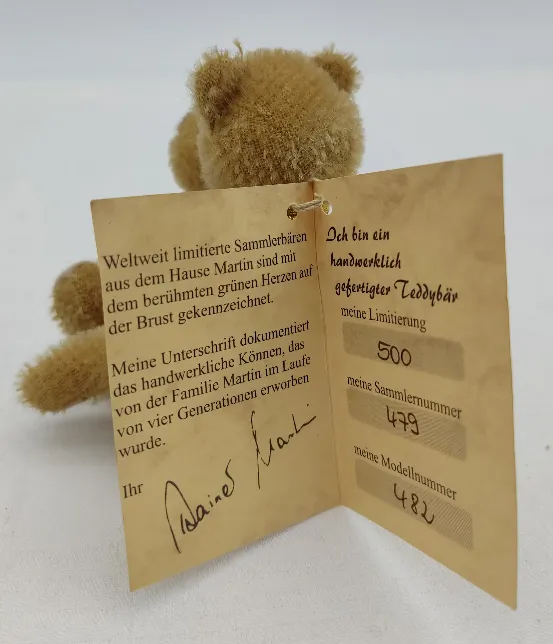 Weltweit limitierte Sammlerbären
aus dem Hause Martin sind mit
dem berühmten grünen Herzen auf
der Brust gekennzeichnet.
Meine Unterschrift dokumentiert
das handwerkliche Können, das
von der Familie Martin im Laufe
von vier Generationen erworben
wurde.
Ihr
Rainer Martin
Ich bin ein
handwerklich
gefertigter Teddybär
meine Limitierung
500
meine Sammlernummer
479
meine Modellnummer
482